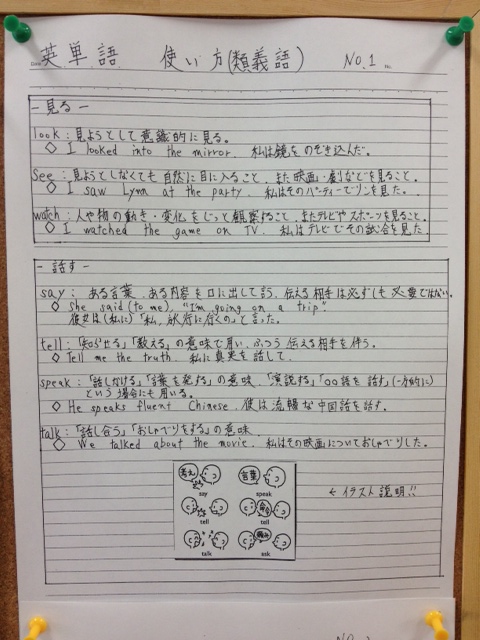 英単語 使い方(類義語) No.1
- 見る -
look : 見ようとして意識的に見る。
◇ I looked into the mirror. 私は鏡をのぞき込んだ。
see : 見ようとしなくても自然に目に入ること、また映画・劇などを見ること。
◇ I saw Lynn at the party. 私はそのパーティーでリンを見た。
watch : 人や物の動き・変化をじっと観察すること、またテレビやスポーツを見ること。
◇ I watched the game on TV. 私はテレビでその試合を見た
- 話す -
say : ある言葉、ある内容を口に出して言う、伝える相手は必ずしも必要ではない。
◇ she said (to me), "I'm going on a trip"
彼女は(私に)「私、旅行に行くの」と言った。
tell : 「知らせる」「教える」の意味で用い、ふつう伝える相手を伴う。
◇ Tell me the truth. 私に真実を話して.
speak : 「話しかける」「言葉を発する」の意味、「演説する」「○○語を話す」(一方的に)
という場合にも用いる。
◇ He speaks fluent Chinese. 彼は流暢な中国語を話す。
talk : 「話し合う」「おしゃべりをする」の意味
◇ We talked about the movie. 私はその映画についておしゃべりした。
考え 言葉
say speak
← イラスト説明!!
tell tell
talk ask